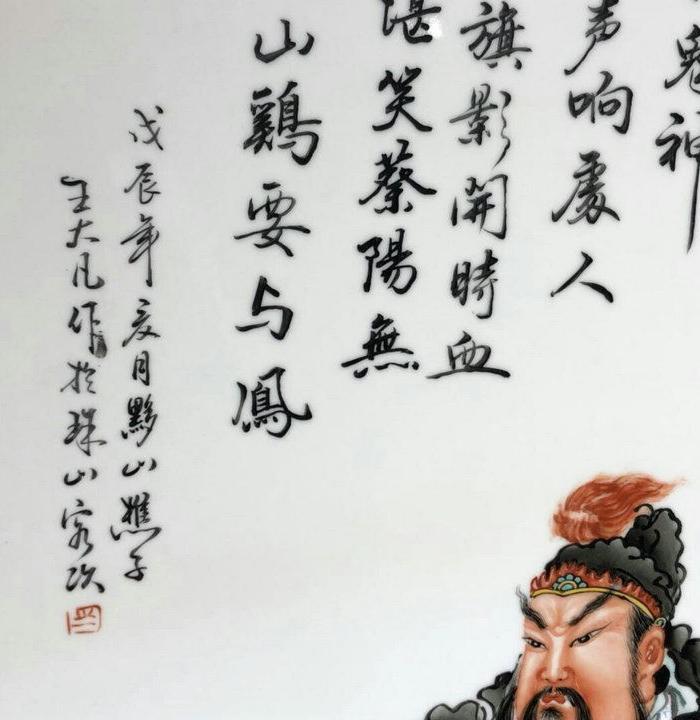 鬼神
声响處人
旗影開時血
堪笑蔡陽無
山鷄要与鳳
戊辰年亥月黟山樵子
王大凡作於珠山客次